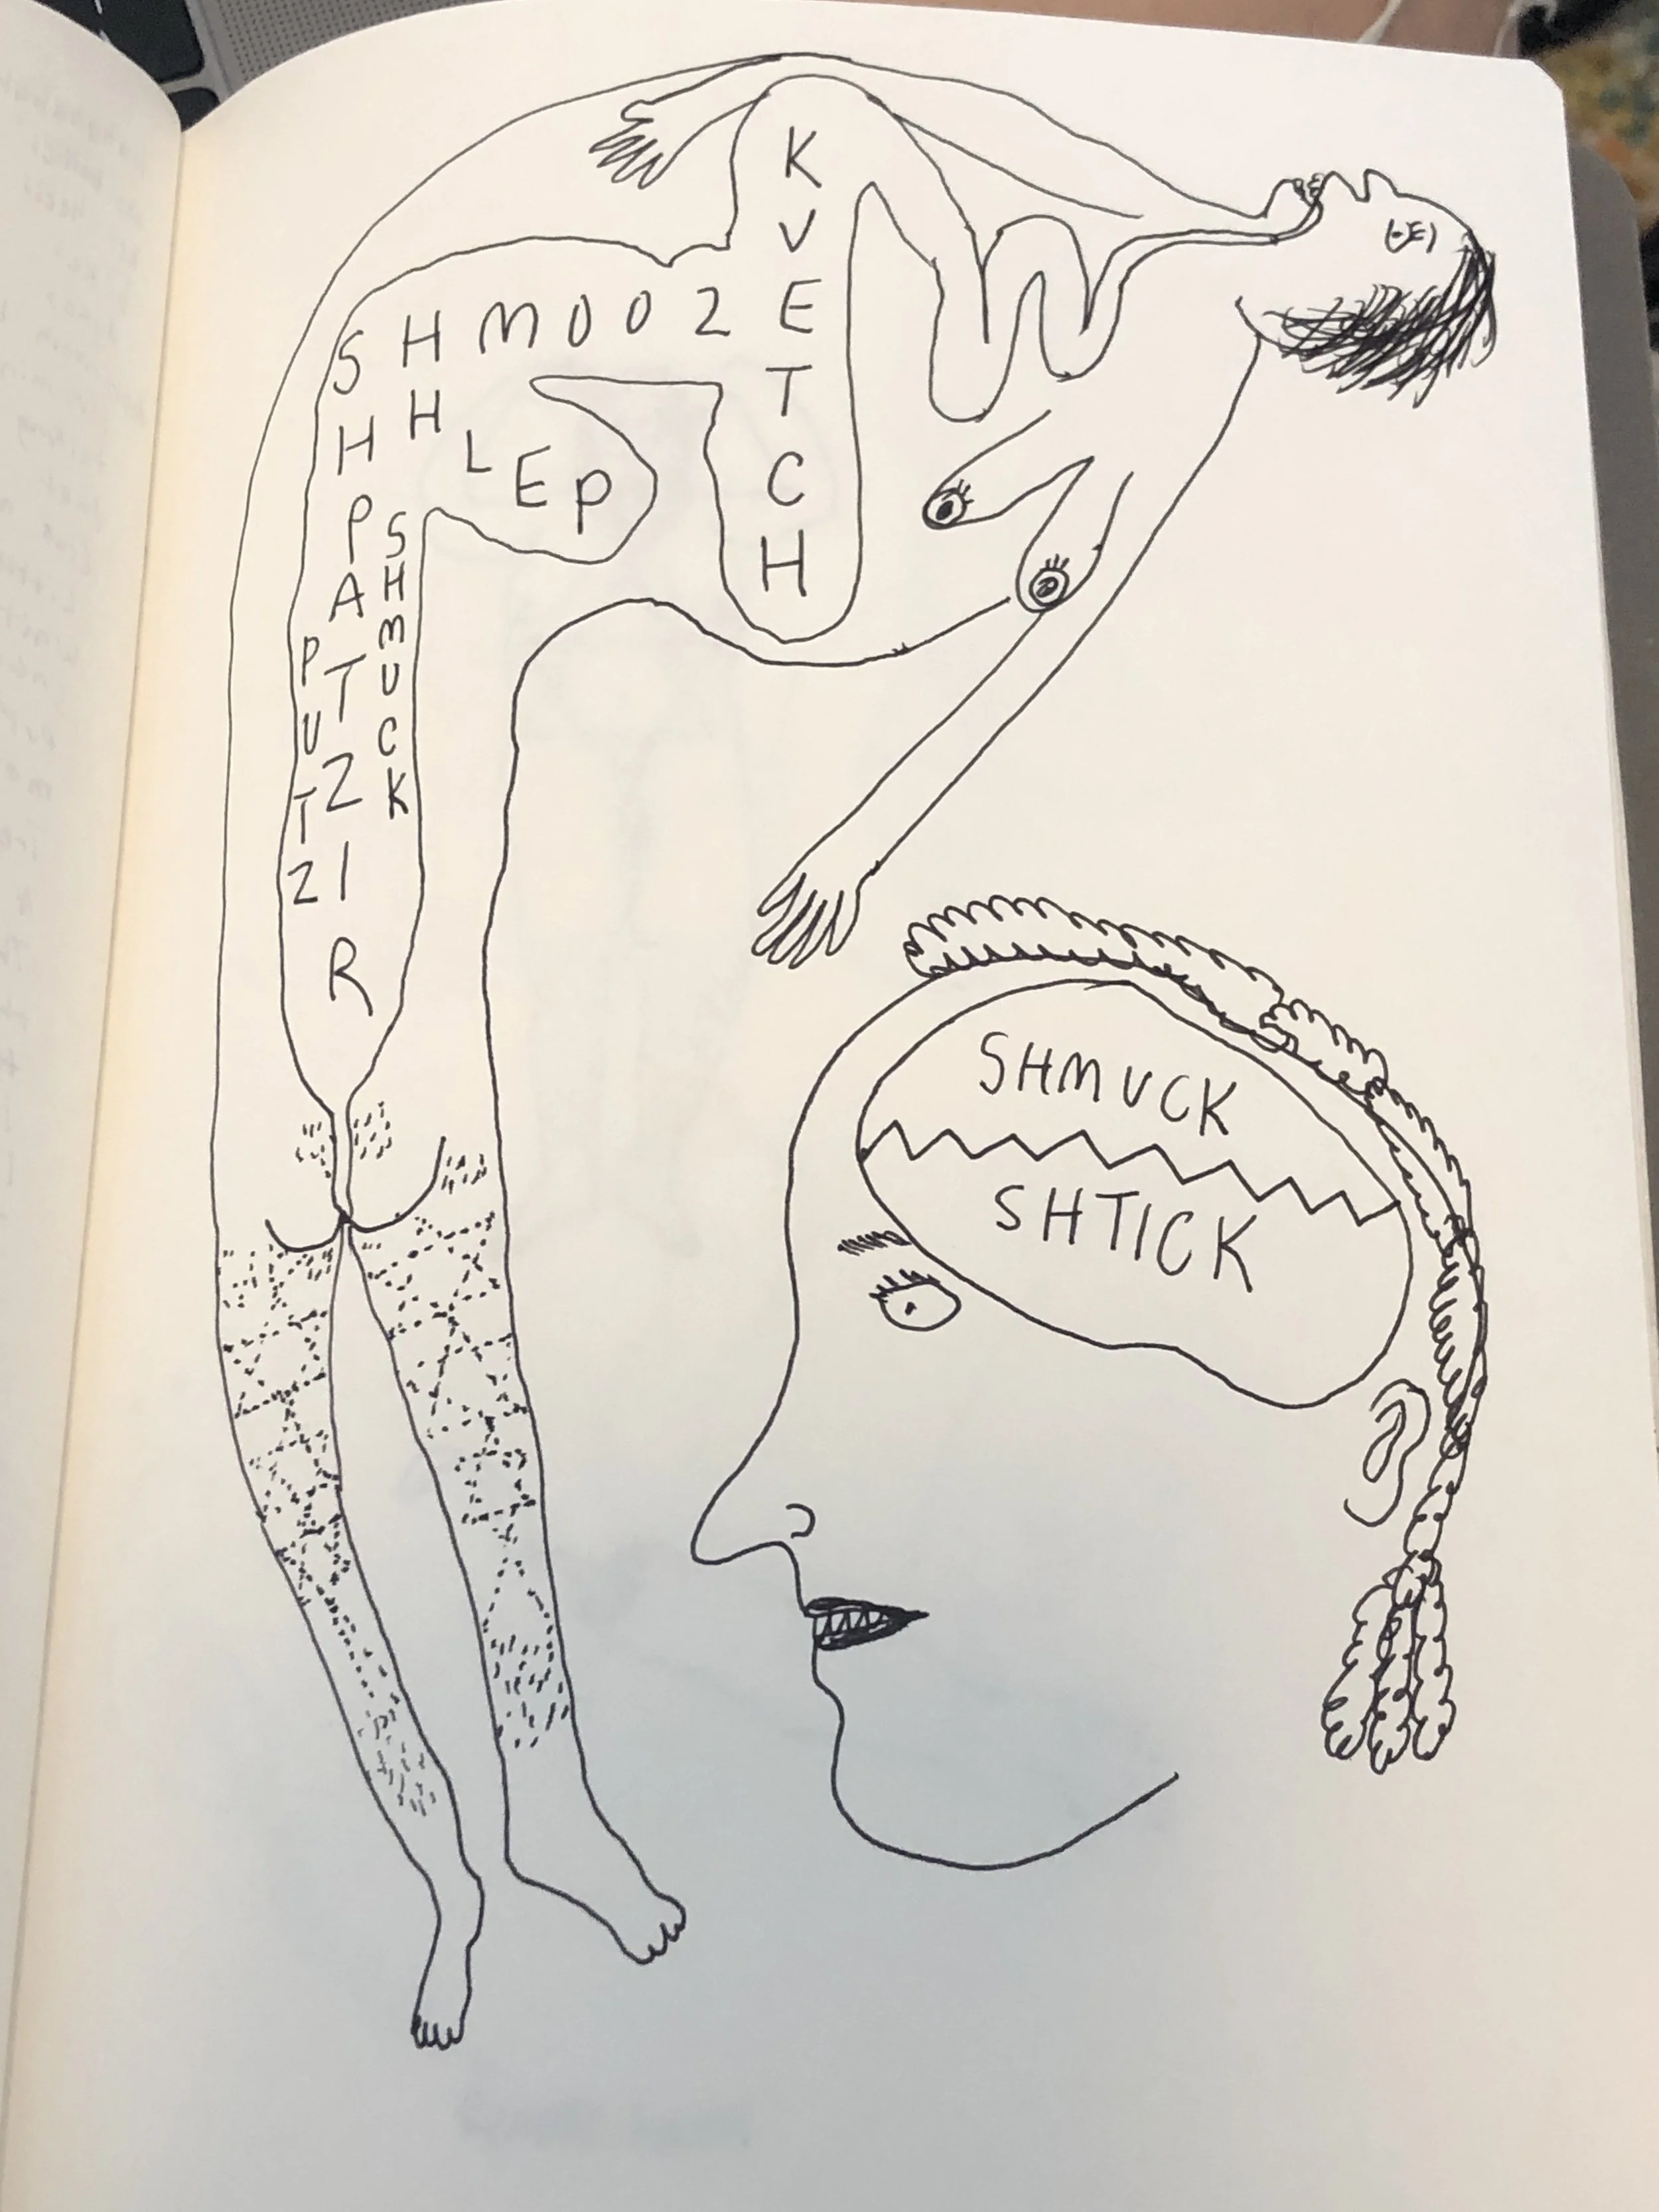 KVETCH
SHMOOZE
SHLEP
SHPATZIR
SHMUCK
PUTZ
SHMUCK
SHTICK